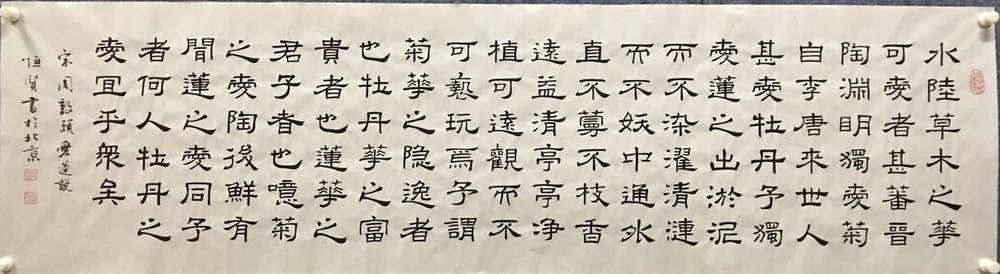 水陸草木之華
可愛者甚蕃晉
陶淵明獨愛菊
自李唐來世人
甚愛牡丹予獨
愛蓮之出淤泥
而不染濯清漣
而不妖中通外
直不蔓不枝香
遠益清亭亭净
植可遠觀而不
可褻玩焉予謂
菊華之隐逸者
也牡丹華之富
貴者也蓮華之
君子者也噫菊
之愛陶後鮮有
聞蓮之愛同予
者何人牡丹之
愛宜乎衆矣
宋周敦頤愛蓮說
恒賢書於北京